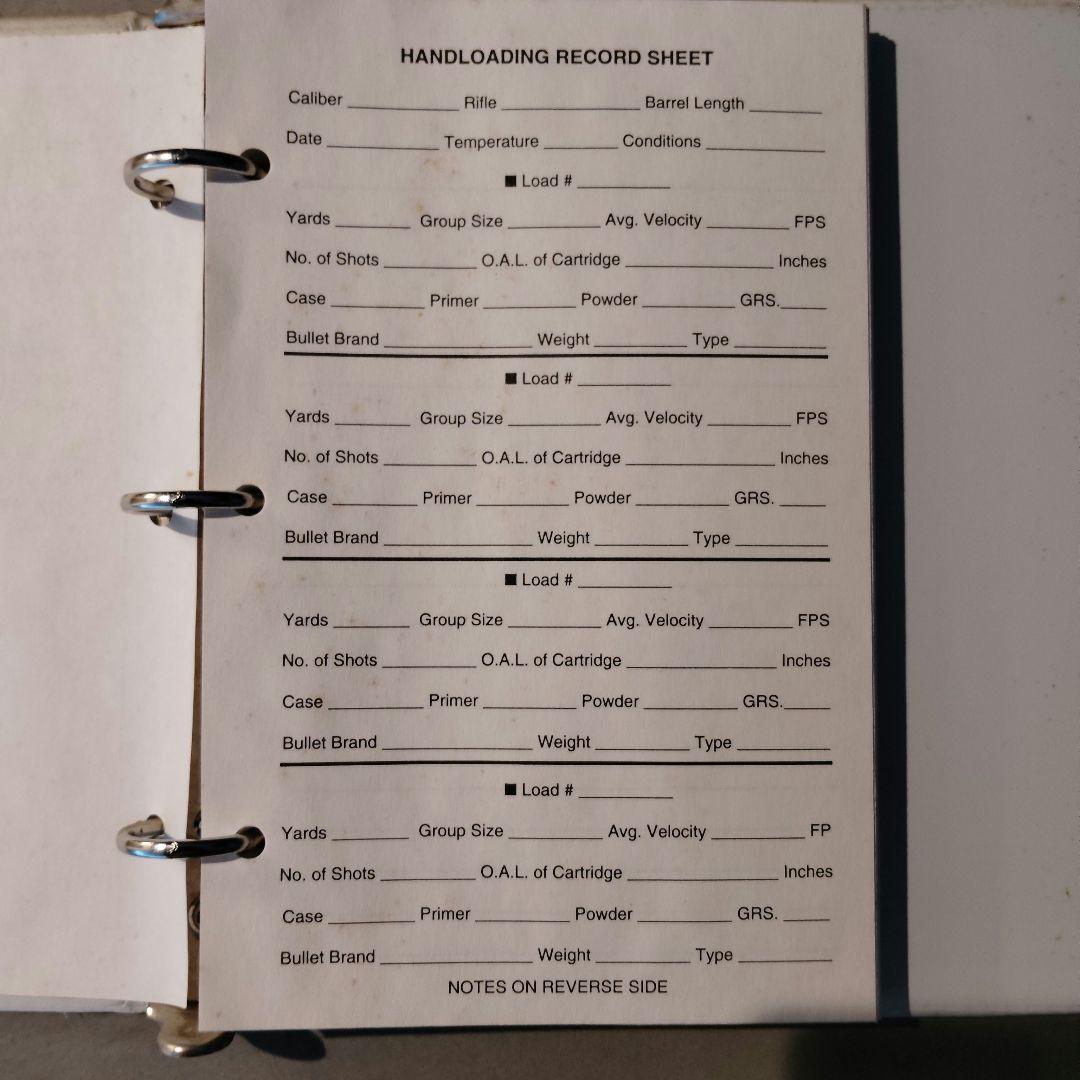 HANDLOADING RECORD SHEET
Caliber ____________ Rifle _______________ Barrel Length ________
Date ____________ Temperature ________ Conditions _____________
■ Load # __________
Yards ________ Group Size __________ Avg. Velocity _________ FPS
No. of Shots __________ O.A.L. of Cartridge ________________ Inches
Case __________ Primer __________ Powder __________ GRS._____
Bullet Brand ________________ Weight __________ Type __________
■ Load # __________
Yards ________ Group Size __________ Avg. Velocity _________ FPS
No. of Shots __________ O.A.L. of Cartridge ________________ Inches
Case _________ Primer __________ Powder __________ GRS. _____
Bullet Brand ________________ Weight __________ Type __________
■ Load # __________
Yards ________ Group Size __________ Avg. Velocity _________ FPS
No. of Shots __________ O.A.L. of Cartridge ________________ Inches
Case __________ Primer __________ Powder __________ GRS._____
Bullet Brand ________________ Weight __________ Type __________
■ Load # __________
Yards ________ Group Size __________ Avg. Velocity __________ FP
No. of Shots __________ O.A.L. of Cartridge ________________ Inches
Case _________ Primer __________ Powder __________ GRS. _____
Bullet Brand ________________ Weight __________ Type __________
NOTES ON REVERSE SIDE